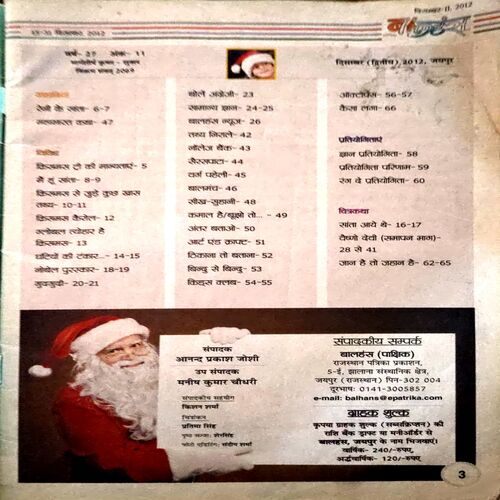 दिसम्बर-II, 2012
15-31 दिसम्बर, 2012
बालहंस
वर्ष- 27 अंक- 11
मार्गशीर्ष कृष्ण - शुक्ल
विक्रम संवत् 2069
रेनी के सांता- 6-7
महाभारत कथा- 47
विविध
क्रिसमस ट्री की मान्यताएं- 5
मैं हूं सांता- 8-9
क्रिसमस से जुड़े कुछ खास
तथ्य- 10-11
क्रिसमस कैरोल- 12
ग्लोबल त्योहार है
क्रिसमस- 13
घंटियों की टंकार...- 14-15
नोबेल पुरस्कार- 18-19
गुदगुदी- 20-21
बोलें अंग्रेजी- 23
सामान्य ज्ञान- 24-25
बालहंस न्यूज- 26
तथ्य निराले- 42
नॉलेज बैंक- 43
सैरसपाटा- 44
वर्ग पहेली- 45
बालमंच- 46
सीख-सुहानी- 48
कमाल है/बूझो तो... - 49
अंतर बताओ- 50
आर्ट एंड क्राफ्ट- 51
ठिकाना तो बताना- 52
बिन्दु से बिन्दु- 53
किड्स क्लब- 54-55
दिसम्बर (द्वितीय), 2012, जयपुर
ऑक्टोपस- 56-57
कैसा लगा- 66
प्रतियोगिताएं
ज्ञान प्रतियोगिता- 58
प्रतियोगिता परिणाम- 59
रंग दे प्रतियोगिता- 60
चित्रकथा
सांता आये थे- 16-17
वैष्णो देवी (समापन भाग)-
28 से 41
जान है तो जहान है- 62-65
संपादक
आनन्द प्रकाश जोशी
उप संपादक
मनीष कुमार चौधरी
संपादकीय सहयोग
किशन शर्मा
चित्रांकन
प्रतिमा सिंह
पृष्ठ सज्जा: शेरसिंह
फोटो एडिटिंग: संदीप शर्मा
संपादकीय सम्पर्क
बालहंस (पाक्षिक)
राजस्थान पत्रिका प्रकाशन,
5-ई, झालाना संस्थानिक क्षेत्र,
जयपुर (राजस्थान) पिन-302 004
दूरभाष: 0141-3005857
e-mail: balhans@epatrika.com
ग्राहक शुल्क
कृपया ग्राहक शुल्क (सब्सक्रिप्शन) की
राशि बैंक ड्राफ्ट या मनीऑर्डर से
बालहंस, जयपुर के नाम भिजवाएं।
वार्षिक- 240/-रुपए,
अर्द्धवार्षिक- 120/-रुपए
3